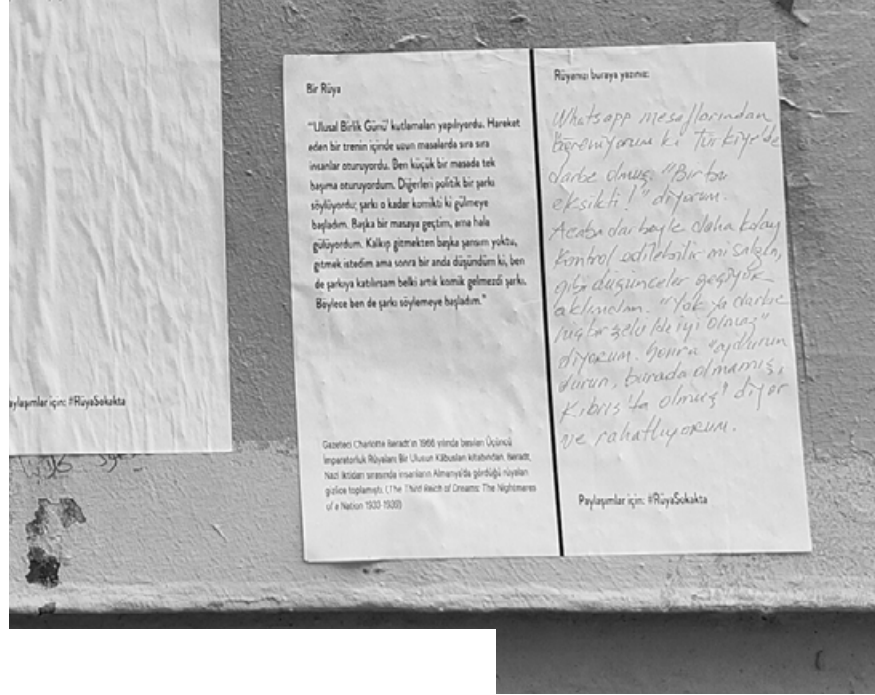 Paylaşımlar için: #RüyaSokakta
Bir Rüya
"'Ulusal Birlik Günü' kutlamaları yapılıyordu. Hareket
eden bir trenin içinde uzun masalarda sıra sıra
insanlar oturuyordu. Ben küçük bir masada tek
başıma oturuyordum. Diğerleri politik bir şarkı
söylüyordu; şarkı o kadar komikti ki gülmeye
başladım. Başka bir masaya geçtim, ama hala
gülüyordum. Kalkıp gitmekten başka şansım yoktu,
gitmek istedim ama sonra bir anda düşündüm ki, ben
de şarkıya katılırsam belki artık komik gelmezdi şarkı.
Böylece ben de şarkı söylemeye başladım."
Gazeteci Charlotte Beradt'ın 1966 yılında basılan Üçüncü
İmparatorluk Rüyaları: Bir Ulusun Kâbusları kitabından. Beradt,
Nazi iktidarı sırasında insanların Almanya'da gördüğü rüyaları
gizlice toplamıştı. (The Third Reich of Dreams: The Nightmares
of a Nation 1933-1939)
Rüyanızı buraya yazınız:
Whatsapp mesajlarından
öğreniyorum ki Türkiye'de
darbe olmuş. "Bir bu
eksikti!" diyorum.
Acaba darbeyle daha kolay
kontrol edilebilir mi salgın,
gibi düşünceler geçiyor
aklımdan. "Yok ya darbe
hiçbir şekilde iyi olmaz"
diyorum. Sonra "ay durun
durun, burada olmamış,
Kıbrıs'ta olmuş" diyor
ve rahatlıyorum.
Paylaşımlar için: #RüyaSokakta